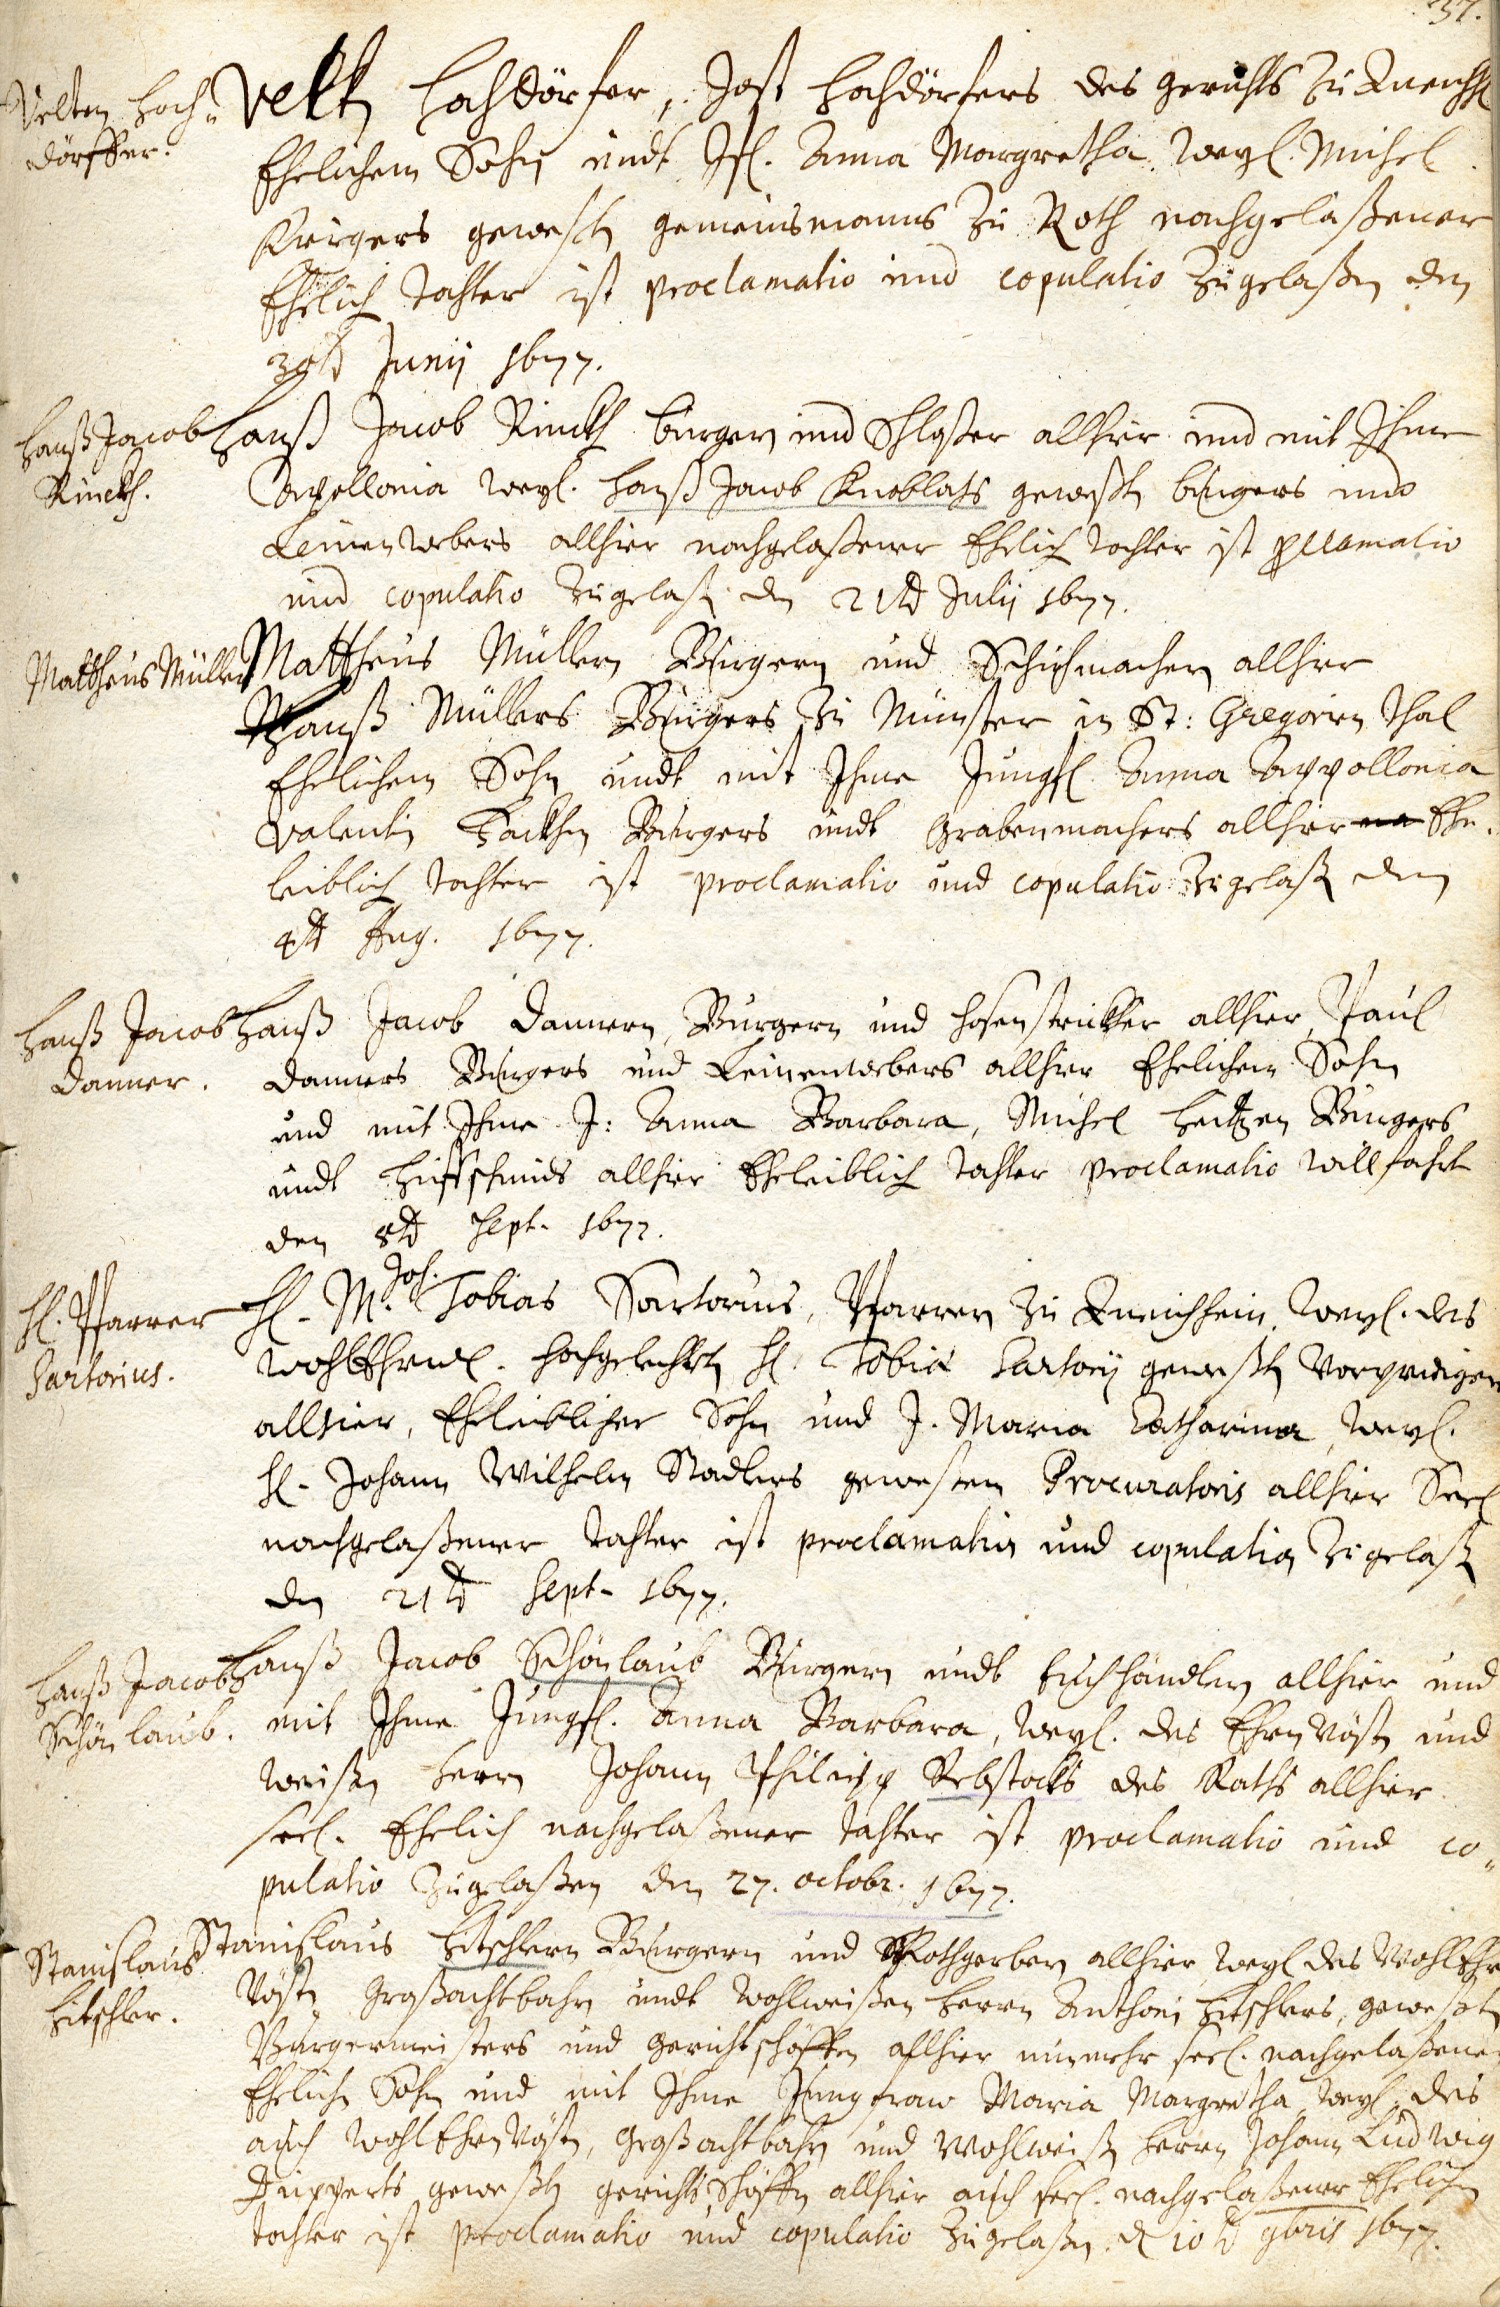 37.
Velten Hoch-
dörffer.
Velten Hochdörfer, Jost Hochdörfers des gerichts zu Queichh
Ehelichem Sohn undt Jfl. Anna Margretha weyl. Michel
Kriegers geweßten gemeinsmanns zu Roth nachgelaßener
Ehelich Tochter ist proclamatio und copulatio zugelaßen den
Junij 1677.
Hanß Jacob
Rinckh.
Hanß Jacob Rinckh burgern und Schloßer allhier und mit Ihme
Appollonia weyl. Hanß Jacob Knoblachs geweßten burgers und
Leinenwebers allhier nachgelaßener Ehelich tochter ist proclamatio
und copulatio zugelaß. den 21t Julij 1677.
Mattheus Müller
Mattheus Müllern Burgern und Schuhmachern allhier
Hanß Müllers Burgers zu Münster in St: Gregorien Thal
Ehelichem Sohn undt mit Ihme Jungfl. Anna Appollonia
Valentin Burgers undt Grabenmachers allhier Ehe-
leiblich tochter ist proclamatio und copulatio zugelaß. den
4t Aug. 1677.
Hanß Jacob
Danner.
Hanß Jacob Dannern, Burgern und hosenstrickher allhier, Paul
Danners Burgers und Leinenwebers allhier Ehelichem Sohn
und mit Ihme J: Anna Barbara, Michel Heitzen Burgers
undt Huffschmids allhier Eheleiblich tochter proclamatio willfahrt
den 8t Sept. 1677.
Hl. Pfarrer
Sartorius.
Hl. M. Joh. Tobias Sartorius, Pfarrern zu Queichhein, weyl. des
wohlEhrw. hochgelehrten Hl. Tobiæ Sartorij geweßten
allhier, Eheleiblicher Sohn und J. Maria Catharina, weyl.
Hl. Johann Wilhelm Stadlers geweßen Procuratoris allhier Seel
nachgelaßener tochter ist proclamation und copulation zugelaß.
den 21t Sept. 1677.
Hanß Jacob
Schönlaub.
Hanß Jacob Schönlaub Burgern undt tuchhändlern allhier und
mit Ihme Jungfl. Anna Barbara, weyl. des Ehrnvösten und
weißen Herrn Johann Philipp Rebstocks des Raths allhier
seel. Ehelich nachgelaßener tochter ist proclamatio und co-
pulatio zugelaßen den 27. octobr. 1677.
Stanislaus
Hitschler.
Stanislaus Hitschlern Burgern und Rothgerbern allhier, weyl. des WohlEhrn
vösten Großachtbahrn undt Wohlweißen Herrn Anthoni Hitschlers, geweßten
Burgermeisters und gerichtschöffen allhier nunmehr seel. nachgelaßener
Ehelich Sohn und mit Ihme Jungfraw Maria Margretha, weyl. des
auch WohlEhrnvösten, Großachtbahrn und Wohlweiß. Herrn Johann Ludwig
geweßten gerichts Schöffen allhier auch seel. nachgelaßener Ehelichen
tochter ist proclamatio und copulatio zugelaßen. d. 10t 9bris 1677.